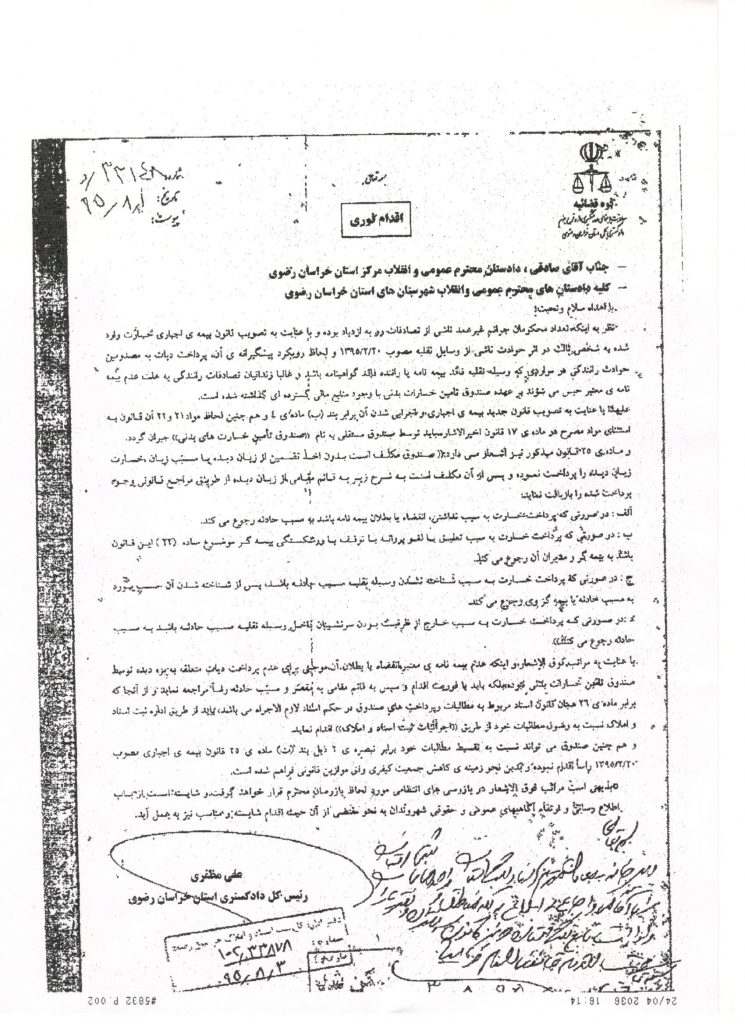 بسمه تعالی
شماره: ۳۳۱۴۸/د
تاریخ: ۹۵/۸/
پیوست:
قوه قضائیه
دادگستری کل استان خراسان رضوی
اقدام فوری
– جناب آقای صادقی، دادستان محترم عمومی و انقلاب مرکز استان خراسان رضوی
– کلیه دادستان های محترم عمومی وانقلاب شهرستان های استان خراسان رضوی
با اهداء سلام وتحیت؛
نظر به اینکه تعداد محکومان جرائم غیرعمد ناشی از تصادفات رو به ازدیاد بوده و با عنایت به تصویب قانون بیمه ی اجباری خسارت وارد
شده به شخص ثالث در اثر حوادث ناشی از وسایل نقلیه مصوب ۱۳۹۵/۲/۲۰ و لحاظ رویکرد پیشگیرانه ی آن، پرداخت دیات به مصدومین
حوادث رانندگی در مواردی که وسیله نقلیه فاقد بیمه نامه یا راننده فاقد گواهینامه باشد و غالبا زندانیان تصادفات رانندگی به علت عدم بیمه
نامه ی معتبر حبس می شوند بر عهده صندوق تامین خسارات بدنی با وجود منابع مالی گسترده ای گذاشته شده است.
علیهذا با عنایت به تصویب قانون جدید بیمه ی اجباری و اجرایی شدن آن برابر بند (ب) ماده ی ۴ و هم چنین لحاظ مواد ۲۱ و ۲۲ آن قانون به
استثنای موارد مصرح در ماده ی ۱۷ قانون اخیرالاشعار میباید توسط صندوق مستقلی به نام «صندوق تأمین خسارت های بدنی» جبران گردد.
و ماده ی ۲۵ قانون مذکور نیز اشعار می دارد: «صندوق مکلف است بدون اخذ تضمین از زیان دیده یا مسبب زیان، خسارت
زیان دیده را پرداخت نموده و پس از آن مکلف است به شرح زیر به قائم مقامی از زیان دیده از طریق مراجع قانونی وجوه
پرداخت شده را بازیافت نماید:
الف: در صورتی که پرداخت خسارت به سبب نداشتن، انقضاء یا بطلان بیمه نامه باشد به مسبب حادثه رجوع می کند.
ب: در صورتی که پرداخت خسارت به سبب تعلیق یا لغو پروانه یا توقف یا ورشکستگی بیمه گر موضوع ماده (۲۲) این قانون
باشد به بیمه گر و مدیران آن رجوع می کند.
ج: در صورتی که پرداخت خسارت به سبب شناخته نشدن وسیله نقلیه مسبب حادثه باشد، پس از شناخته شدن آن حسب مورد
به مسبب حادثه یا بیمه گر وی رجوع می کند.
د: در صورتی که پرداخت خسارت به سبب خارج از ظرفیت بودن سرنشینان داخل وسیله نقلیه مسبب حادثه باشد به مسبب
حادثه رجوع می کند»
با عنایت به مراتب فوق الاشعار و اینکه عدم بیمه نامه ی معتبر، انقضاء یا بطلان آن موجبی برای عدم پرداخت دیات متعلقه به بزه دیده توسط
صندوق تامین خسارات بدنی نبوده بلکه باید با فوریت اقدام و سپس به قائم مقامی به مقصر و مسبب حادثه راسا مراجعه نماید و از آنجا که
برابر ماده ی ۲۶ همان قانون اسناد مربوط به مطالبات و پرداخت های صندوق در حکم اسناد لازم الاجراء می باشد، باید از طریق اداره ثبت اسناد
و املاک نسبت به وصول مطالبات خود از طریق «اجرائیات ثبت اسناد و املاک» اقدام نماید.
و هم چنین صندوق می تواند نسبت به تقسیط مطالبات خود برابر تبصره ی ۲ ذیل بند (ت) ماده ی ۲۵ قانون بیمه ی اجباری مصوب
۱۳۹۵/۲/۲۰ راساً اقدام نموده و بدین نحو زمینه ی کاهش جمعیت کیفری وفق موازین قانونی فراهم شده است.
بدیهی است مراتب فوق الاشعار در بازرسی های انتظامی مورد لحاظ بازرسان محترم قرار خواهد گرفت و شایسته است از باب
اطلاع رسانی و ارتقاء آگاهیهای عمومی و حقوقی شهروندان به نحو مقتضی از آن حیث اقدام شایسته و مناسب نیز به عمل آید.
علی مظفری
رئیس کل دادگستری استان خراسان رضوی
بسمه تعالی
دفتر اداره کل ثبت اسناد و املاک خراسان رضوی
شماره: ۱۰۲/۳۳۸۷۸
۹۵/۸/۳
۱
24/04 2036 16:14
#5832 P.002